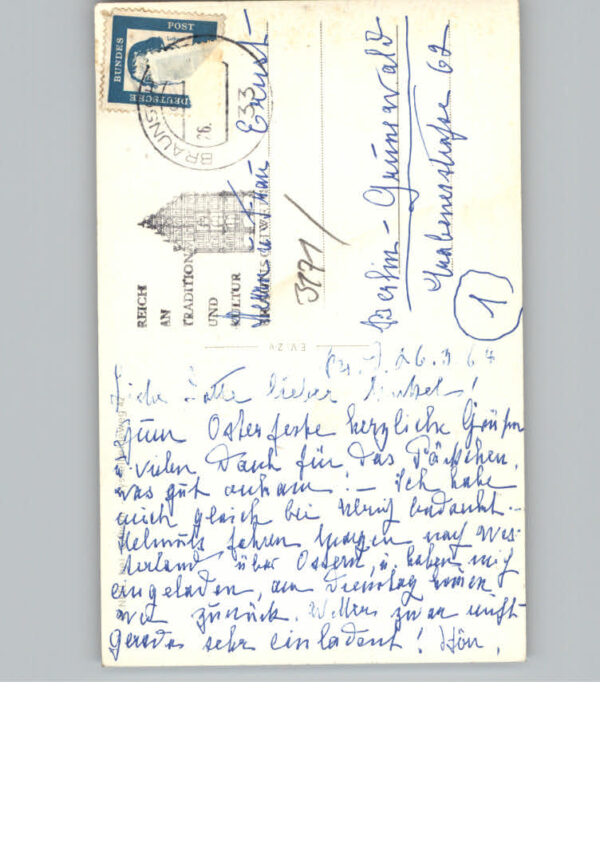 DEUTSCHE
BUNDES
POST
BRAUNS
26.
33
REICH
AN
TRADITION
UND
KULTUR
Herrn u. Frau Ernst
3171/
Berlin - Grunewald
straße 62
1
Br. d. 26. 3 64
Liebe Lotte lieber !
Zum Osterfeste herzliche Grüße
vielen Dank für das Päckchen,
was gut ankam! - Ich habe
mich gleich bei Ulrich bedankt. -
Helmuts fahren Morgen nach Wes-
terland über Ostern, u. haben mich
eingeladen, am Dienstag
wir zurück. zwar nicht
gerade sehr einladent!